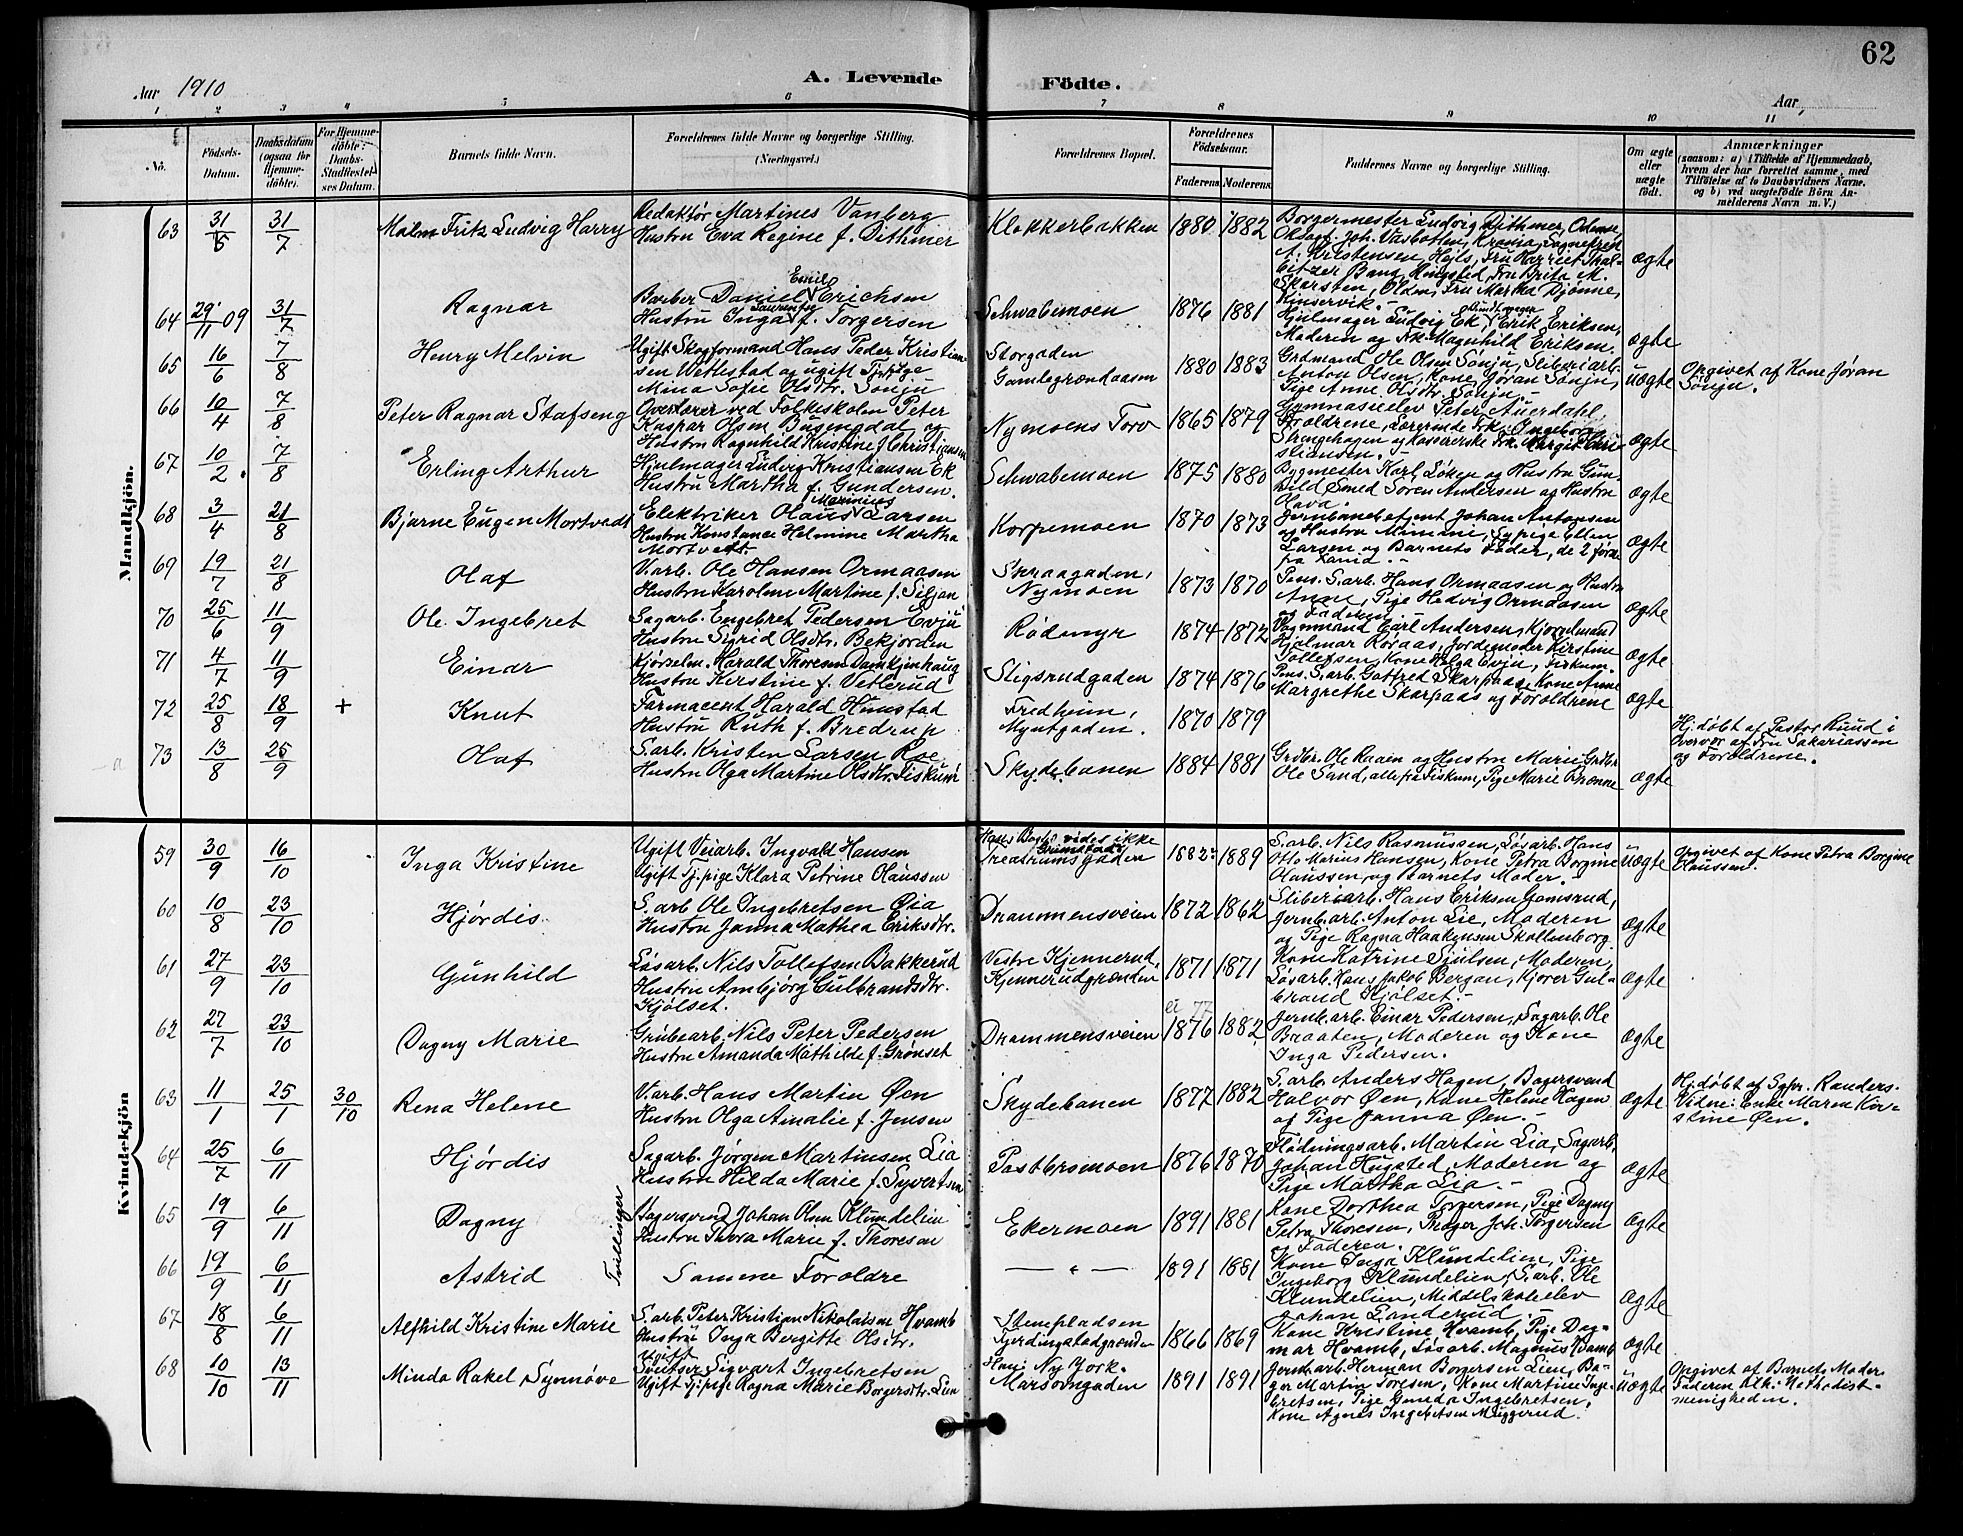 62
Aar 1910
A. Levende Födte.
Aar,
1 2 3 4 5 6 7 8 9 10 11
Nö.
Födsels-Datum.
Daabsdatum (ogsaa for Hjemme-döbte).
For Hjemme-döbte: Daabs-Stadfæstel-ses Datum.
Barnets fulde Navn.
Forældrenes fulde Navne og borgerlige Stilling. (Næringsvei.)
Forældrenes Bopæl.
Forældrenes Födselsaar. Faderens Moderens
Faddernes Navne og borgerlige Stilling.
Om ægte eller uægte födt.
Anmærkninger (saasom: a) i Tilfælde af Hjemmedaab, hvem der har forrettet samme, med Tilföielse af to Daabsvidners Navne, og b) ved uægtefödte Börn An-melderens Navn m. V.)
Mandkjön.
63 31/5 31/7 Malm Fritz Ludvig Harry
Redaktør Martines Vanberg
Hustru Eva Regine f. Dithmer
Klokkerbakken 1880 1882
Borgermester Ludvig Dithmer, Odense,
ægte
64 29/11 09 31/7 Ragnar
Barber Daniel Emil Erichsen
Hustru Inga Laurentse f. Torgersen
Schwabemoen 1876 1881
Hjulmager Ludvig Ek, Erik Eriksen,
Moderen og Frk. Magnhild Eriksen.
ægte
65 16/6 7/8 Henry Melvin
Ugift Skogformand Hans Peder Kristian-
sen Wettestad og ugift Tj.pige
Mina Sofie Olsdtr. Sønju
Storgaden
Gamlegrændaasen 1880 1883
Grdmand Ole Olsen Sønju, Sliberiarb.
Anton Olsen, Kone Jøran Sønju,
Pige Anne Olsdtr. Sønju.-
uægte
Opgivet af Kone Jøran
Sønju.
66 10/4 7/8 Peter Ragnar Stafseng
Overlærer ved Folkeskolen Peter
Kaspar Olsen Busengdal og
Hustru Ragnhild Kristine f. Christiansen
Nymoens Torv 1865 1879
Gymnasieelev Peter Auerdahl,
Forældrene, Lærerinde Frk. Ingeborg
ægte
67 10/2 7/8 Erling Arthur
Hjulmager Ludvig Kristiansen Ek
Hustru Martha f. Gundersen.
Schwabemoen 1875 1880
Bygmester Karl Løken og Hustru Gun-
hild Smed Søren Andersen og Hustru
Olava.
ægte
68 3/4 21/8 Bjarne Eugen Mortvedt
Elektriker Olaus Marinius Larsen
Hustru Konstance Helmine Martha
Mortvedt
Korpemoen 1870 1873
Jernbanebetjent Johan Antonsen
og Hustru Mimmi, Sypige Ellen
Larsen og Barnets Fader, de 2 første
ægte
69 19/7 21/8 Olaf
V.arb. Ole Hansen Ormaasen
Hustru Karoline Martine f. Siljan
Skraagaden,
Nymoen 1873 1870
Pens. S.arb. Hans Ormaasen og Hustru
Anne, Pige Hedvig Ormaasen
og Faderen
ægte
70 25/6 11/9 Ole Ingebret
Sagarb. Engebret Pedersen Evju
Hustru Sigrid Olsdtr. Bekjorden
Rødmyr 1874 1872
Vognmand Carl Andersen, Kjørselmand
Hjalmar Roraas, Jordemoder Kirstine
Tollefsen, Kone Helga Evju, Fiskum.
ægte
71 4/7 11/9 Einar
Kjørselm. Harald Thoresen Damkjenhaug
Hustru Kirstine f. Vetlerud
Stigsrudgaden 1874 1876
Pens. S.arb. Gotfred Skarpaas, Kone Anne
Margrethe Skarpaas og Forældrene
ægte
72 25/8 18/9 + Knut
Farmaceut Harald Hunstad
Hustru Ruth f. Bredrup
Fredheim,
Myntgaden. 1870 1879
Hj.døbt af Pastor Ruud i
Overvær af Fru Sakariassen
og Forældrene.
73 13/8 25/9 Olaf
S.arb. Kristen Larsen Roe
Hustru Olga Martine Olsdtr. Fiskum
Skydebanen 1884 1881
Grdbr. Ole Raaen og Hustru Marie Grdbr.
Ole Sand, alle fra Fiskum, Pige Marie Brænne
ægte
Kvindekjön
59 30/9 16/10 Inga Kristine
Ugift Veiarb. Ingvald Hansen
Ugift Tj.pige Klara Petrine Olaussen
Hans Bopl. vides ikke
Treatrumsgaden 1882 1889
S.arb. Nils Rasmussen, Løsarb. Hans
Otto Marius Hansen, Kone Petra Borgine
Olaussen og Barnets Moder.
uægte
Opgivet af Kone Petra Borgine
Olaussen.
60 10/8 23/10 Hjørdis
S.arb. Ole Ingebretsen Øia
Hustru Janna Mathea Eriksdtr.
Drammensveien 1872 1862
Sliberiarb. Hans Eriksen Gamsrud,
Jernb.arb. Anton Lie, Moderen
og Pige Ragna Haakensen Skollenborg.
ægte
61 27/9 23/10 Gunhild
Løsarb. Nils Tollefsen Bakkerud
Hustru Ambjørg Gulbrandsdtr.
Kjølset.
Vestre Kjennerud
Kjennerudgrænden 1871 1871
Kone Katrine Sjulsen, Moderen,
Løsarb. Hans Jakob Bergan, Kjører Gul-
brand Kjølset.-
ægte
62 27/7 23/10 Dagny Marie
Grubearb. Nils Peter Pedersen
Hustru Amanda Mathilde f. Grønset
Drammensveien 1876 1882
Jernb.arb. Einar Pedersen, Sagarb. Ole
Braaten, Moderen og Kone
Inga Pedersen.
ægte
63 11/1 25/1 30/10 Rena Helene
V.arb. Hans Martin Øen
Hustru Olga Amalie f. Jensen
Skydebanen 1877 1882
S.arb. Anders Hagen, Bagersvend
Halvor Øen, Kone Helene Hagen
og Pige Janna Øen.-
ægte
Hj.døbt af Sgpr. Randers.
Vidne: Enke Maren Kir-
stine Øen.
64 25/7 6/11 Hjørdis
Sagarb. Jørgen Martinsen Lia
Hustru Hilda Marie f. Syvertsen
Pastbrsmoen 1876 1870
Flødningsarb. Martin Lia, Sagarb.
Johan Hugsted, Moderen og
Pige Martha Lia.-
ægte
Tvillinger
65 19/9 6/11 Dagny
Bagersvend Johan Olsen Klundelien
Hustru Thora Marie f. Thoresen
Ekermoen 1891 1881
Kone Dorthea Torgersen, Pige Dagny
Petra Thoresen, Prager Joh. Torgersen
og Faderen.
ægte
66 19/9 6/11 Astrid
Samme Foroldre
— " — 1891 1881
Kone Inga Klundelien, Pige
Ingeborg Klundelien, S.arb. Ole
Klundelien, Middelskoleelev
Johan Landerud.-
ægte
67 18/8 6/11 Alfhild Kristine Marie
S.arb. Peter Kristian Nikolaisen Hvamb
Hustru Inga Bergitte Olsdtr.
Stempladsen
Tjerdingstadgrænden 1866 1869
Kone Kristine Hvamb, Pige Dag-
mar Hvamb, Løsarb. Magnus Hvamb
ægte
68 10/10 13/11 Minda Rakel Synnøve
Ugift
Sveitser Sigvart Ingebretsen
Ugift Tj.pige Ragna Marie Borgersdtr. Lien
Han: Ny York.
Marsovngaden 1891 1891
Jernb.arb. Herman Borgersen Lien, Ba-
ger Martin Toresen, Kone Martine Inge-
bretsen, Pige Gunda Ingebretsen,
Kone Agnes Ingebretsen Muggerud.
uægte
Opgivet af Barnets Moder.
Faderen tilh. Methodist-
menigheden.